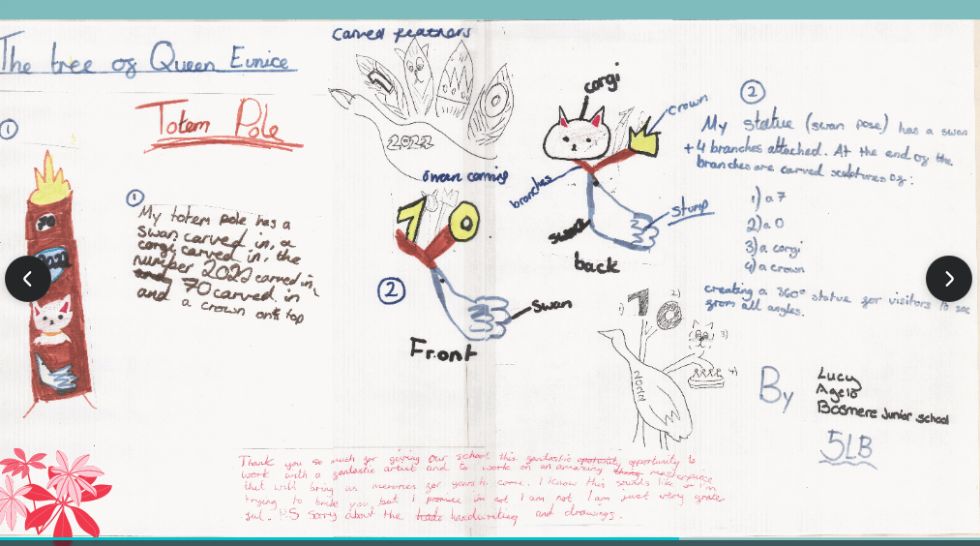 The tree of Queen Eunice
Totem Pole
1
70
2022
1
My totem pole has a
swan carved in, a
corgi carved in, the
number 2022 carved in,
and 70 carved in
and a crown on top
Carved feathers
7
0
2022
swan coming
7 0
2
swan
Front
corgi
crown
branches
stump
swan
back
2
My statue (swan pose) has a swan
+4 branches attached. At the end of the
branches are carved sculptures of:
1) a 7
2) a 0
3) a corgi
4) a crown
creating a 360° statue for visitors to see
from all angles.
1)
2)
7 0
3)
4)
By
Lucy
Age 10
Boomere Junior school
5LB
Thank you so much for giving our school this fantastic opportunity to
work with a fantastic artist and to work on an amazing masterpiece
that will bring us memories for years to come. I know this sounds like
trying to bribe you but I promise im not I am not I am just very grate
ful. P.S sorry about the handwriting and drawings.